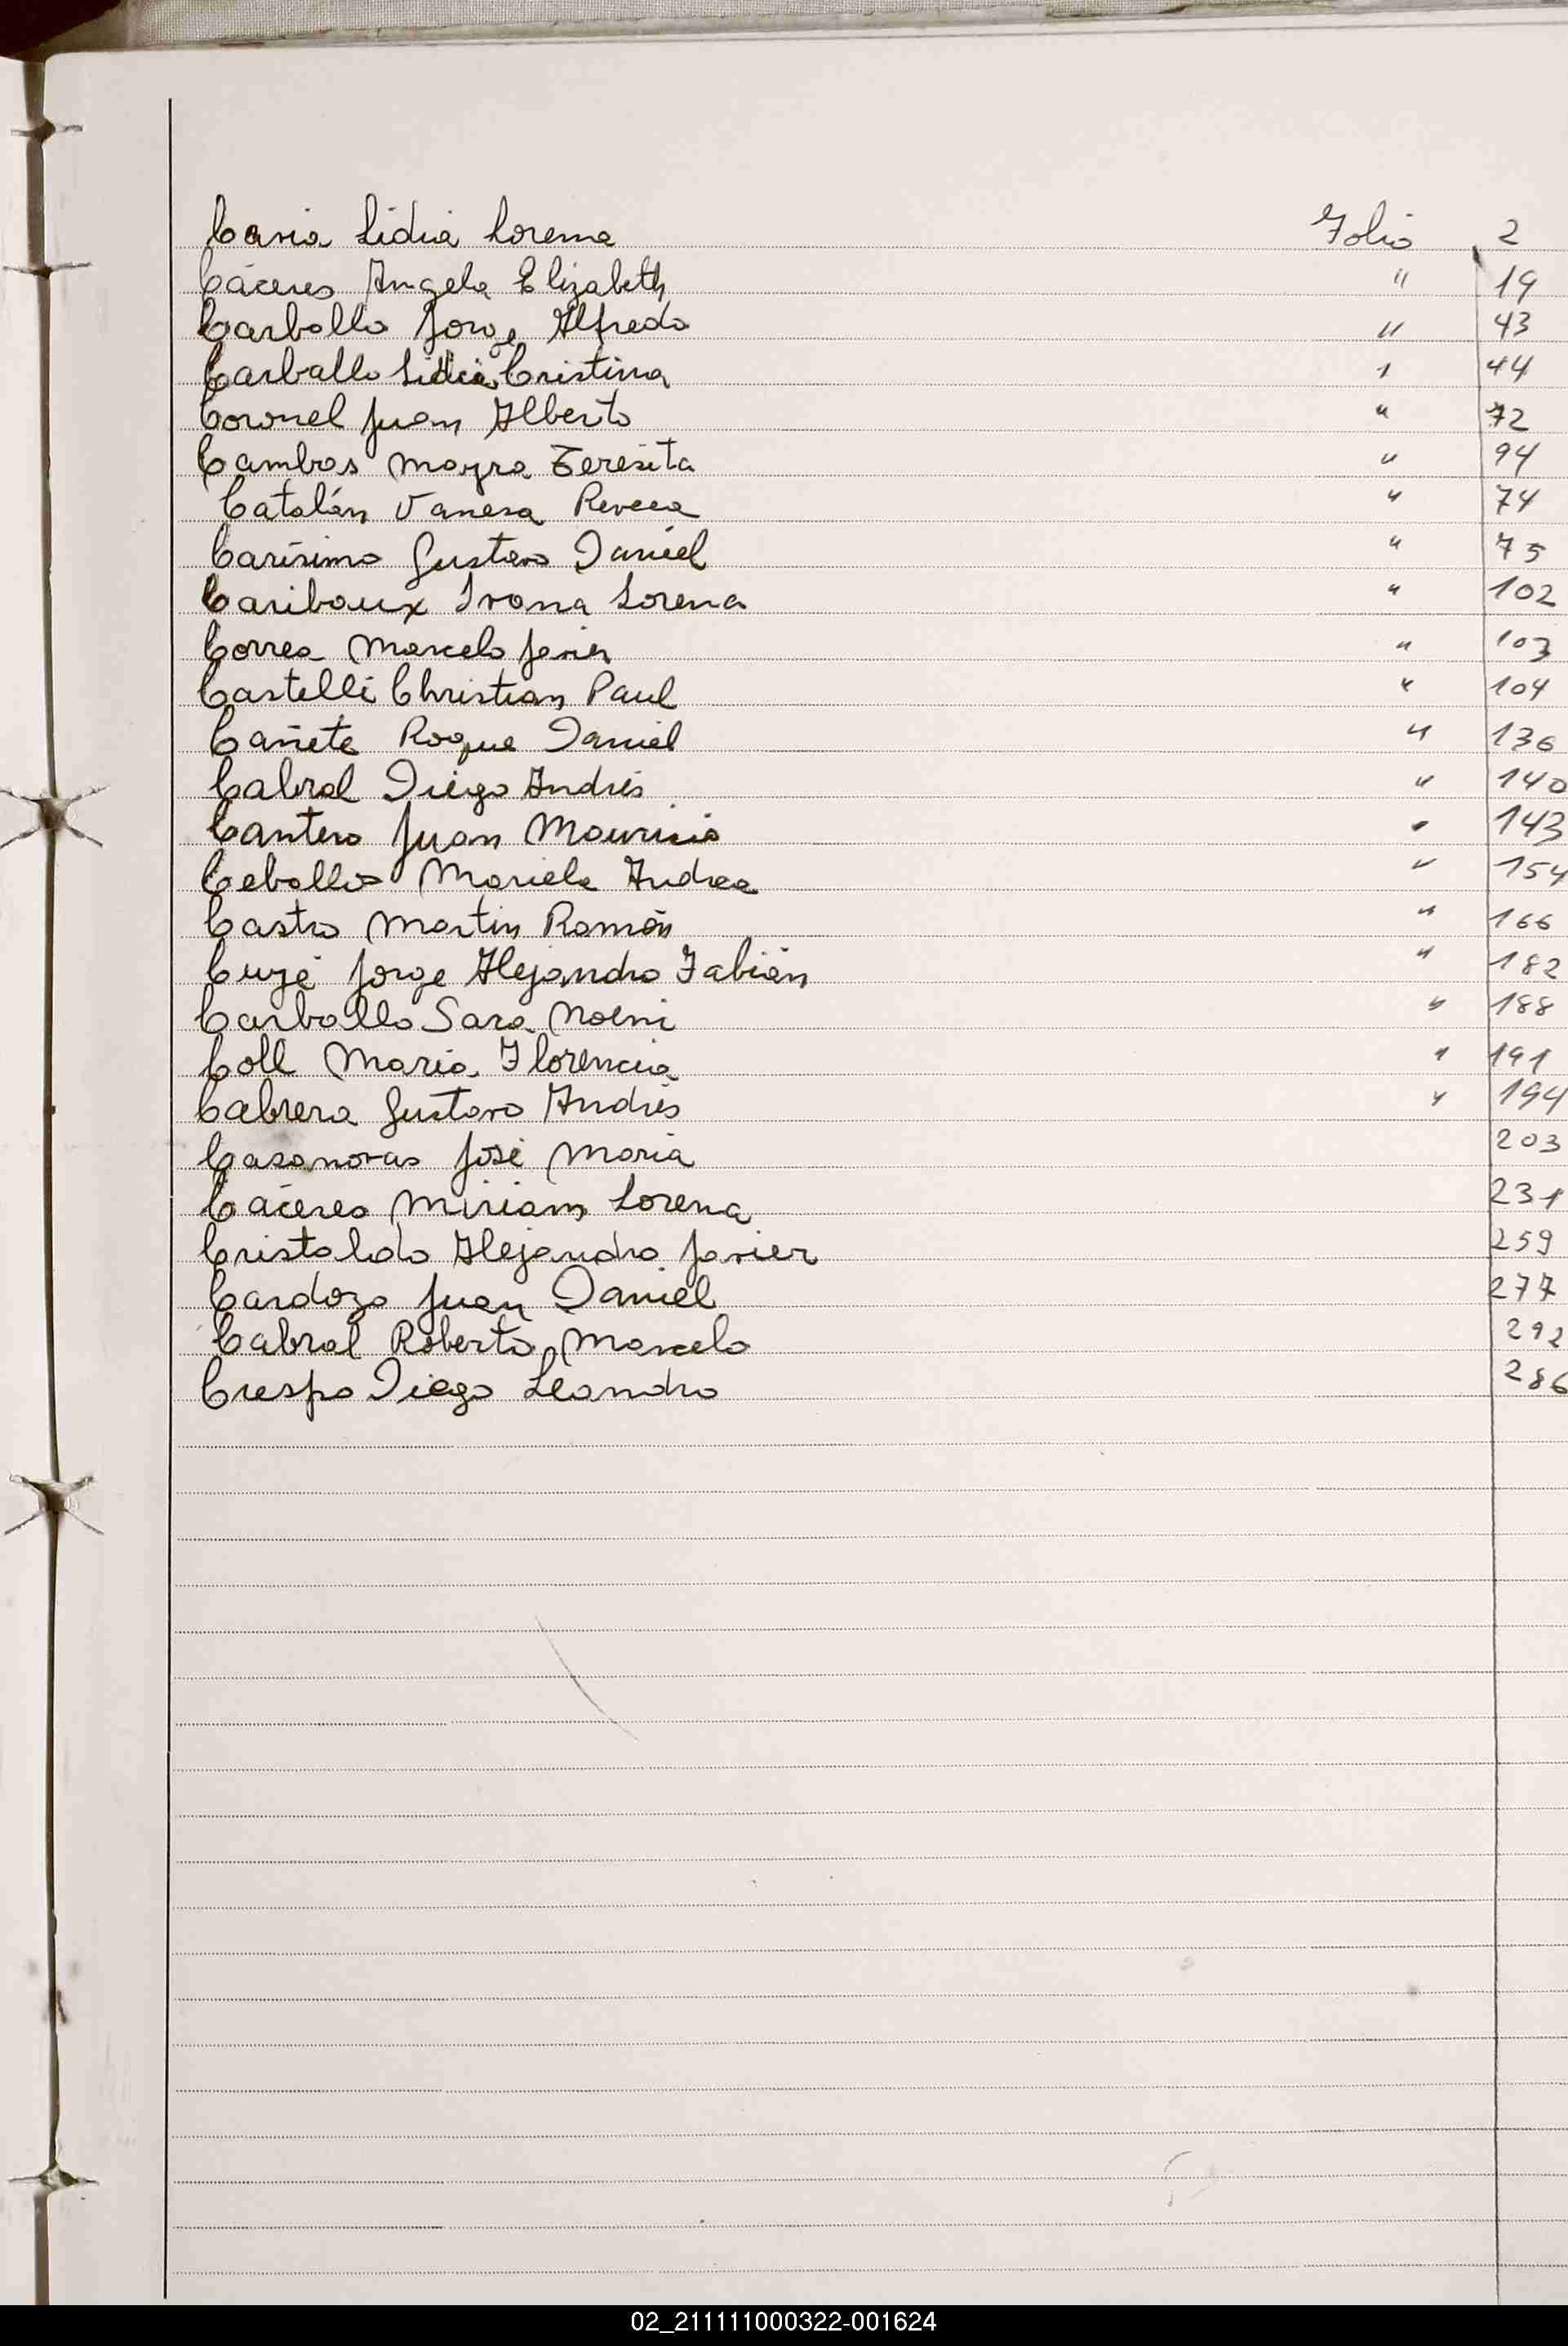 Caria Lidia Lorena Folio 2
Cáceres Angela Elizabeth " 19
Carballo Jorge Alfredo " 43
Carballo Lidia Cristina " 44
Coronel Juan Alberto " 72
Cambas Mayra Teresita " 94
Catalán Vanesa Reveca " 74
Carísimo Gustavo Daniel " 75
Cariboux Ivana Lorena " 102
Correa Marcelo Javier " 103
Castelli Christian Paul " 104
Cañete Roque Daniel " 136
Cabral Diego Andrés " 140
Cantero Juan Mauricio " 143
Ceballos Mariela Andrea " 154
Castro Martin Ramón " 166
Jorge Alejandro Fabián " 182
Carballo Sara Noemi " 188
Coll Maria Florencia " 191
Cabrera Gustavo Andrés " 194
Casanovas José Maria 203
Cáceres Miriam Lorena 231
Cristaldo Alejandro Javier 259
Cardozo Juan Daniel 277
Cabral Roberto Marcelo 292
Crespo Diego Leandro 286
02_211111000322-001624